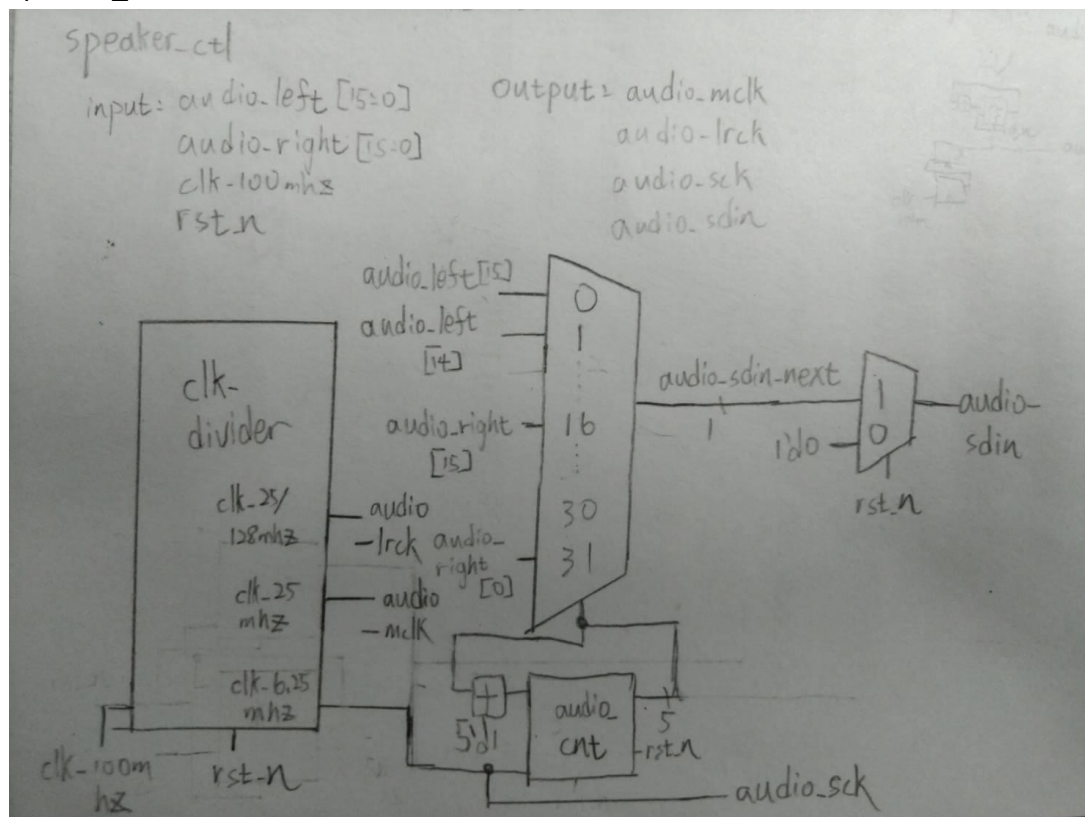 speaker_ctl
input: audio_left [15:0]
audio_right [15:0]
clk-100mhz
rst_n
Output: audio_mclk
audio_lrck
audio_sck
audio_sdin
audio_left[15]
0
audio_left
[14]
1
audio_right
[15]
16
30
audio_
right
[0]
31
audio_sdin_next
1
1
1'd0
0
rst_n
audio-
sdin
clk-
divider
clk_25/
128mhz
audio
-lrck
clk_25
mhz
audio
-mclk
clk-6.25
mhz
clk-100m
hz
rst-n
+
5'd1
audio_
cnt
5
rst_n
audio_sck